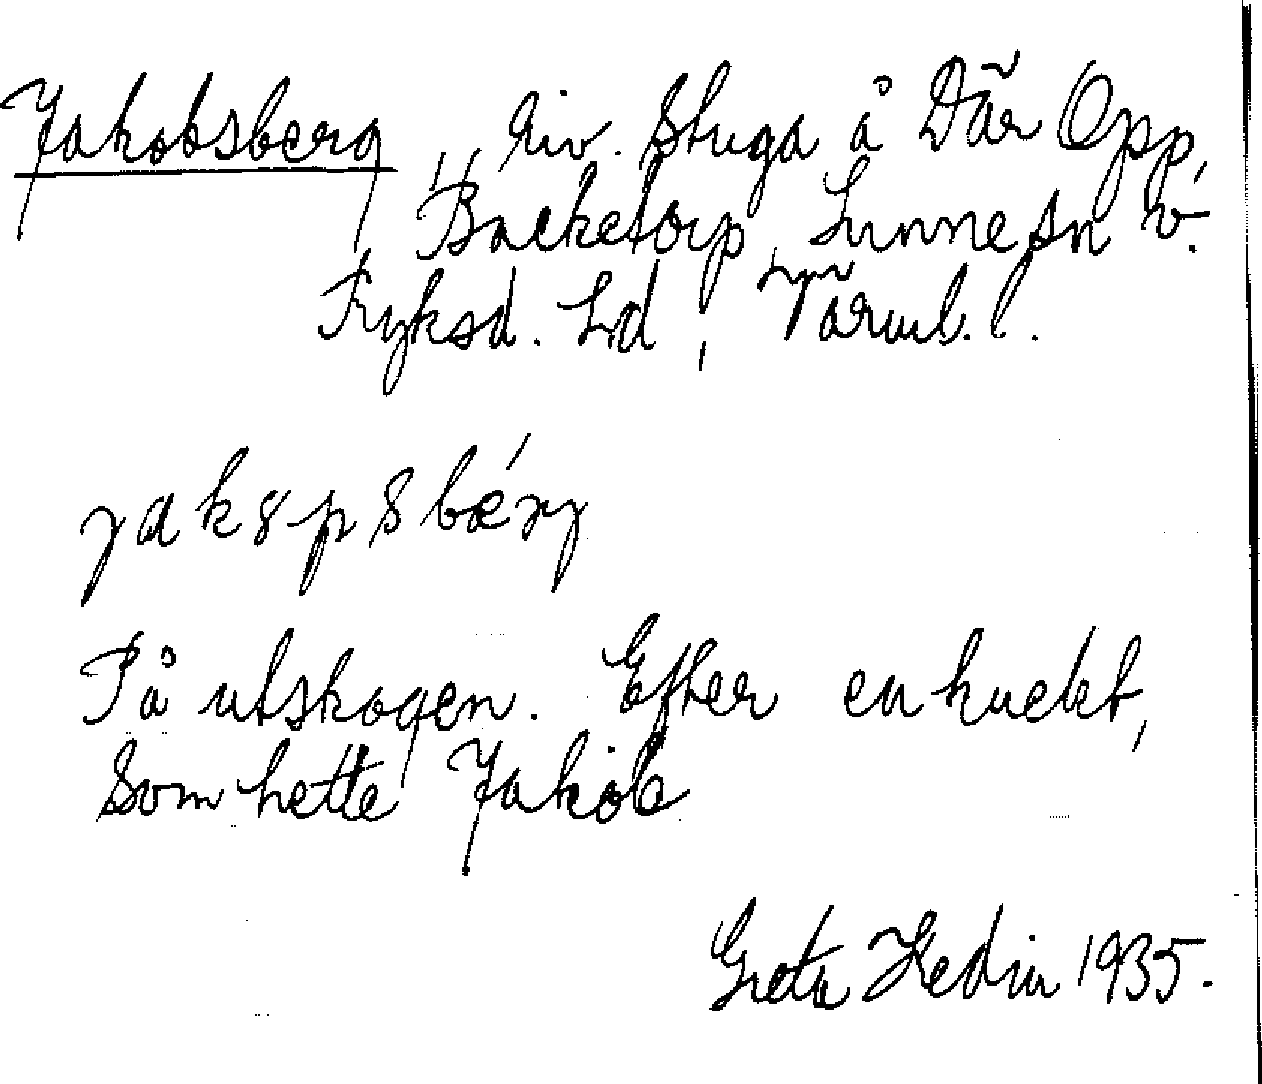 Jakobsberg, riv. Stuga å Där Opp,
Backetorp, Sunne sn v.
Fryksd. hd, Värml. l.
jakspsbærj
På utskogen. Efter en knekt,
som hette Jakob
Greta Hedin 1935.